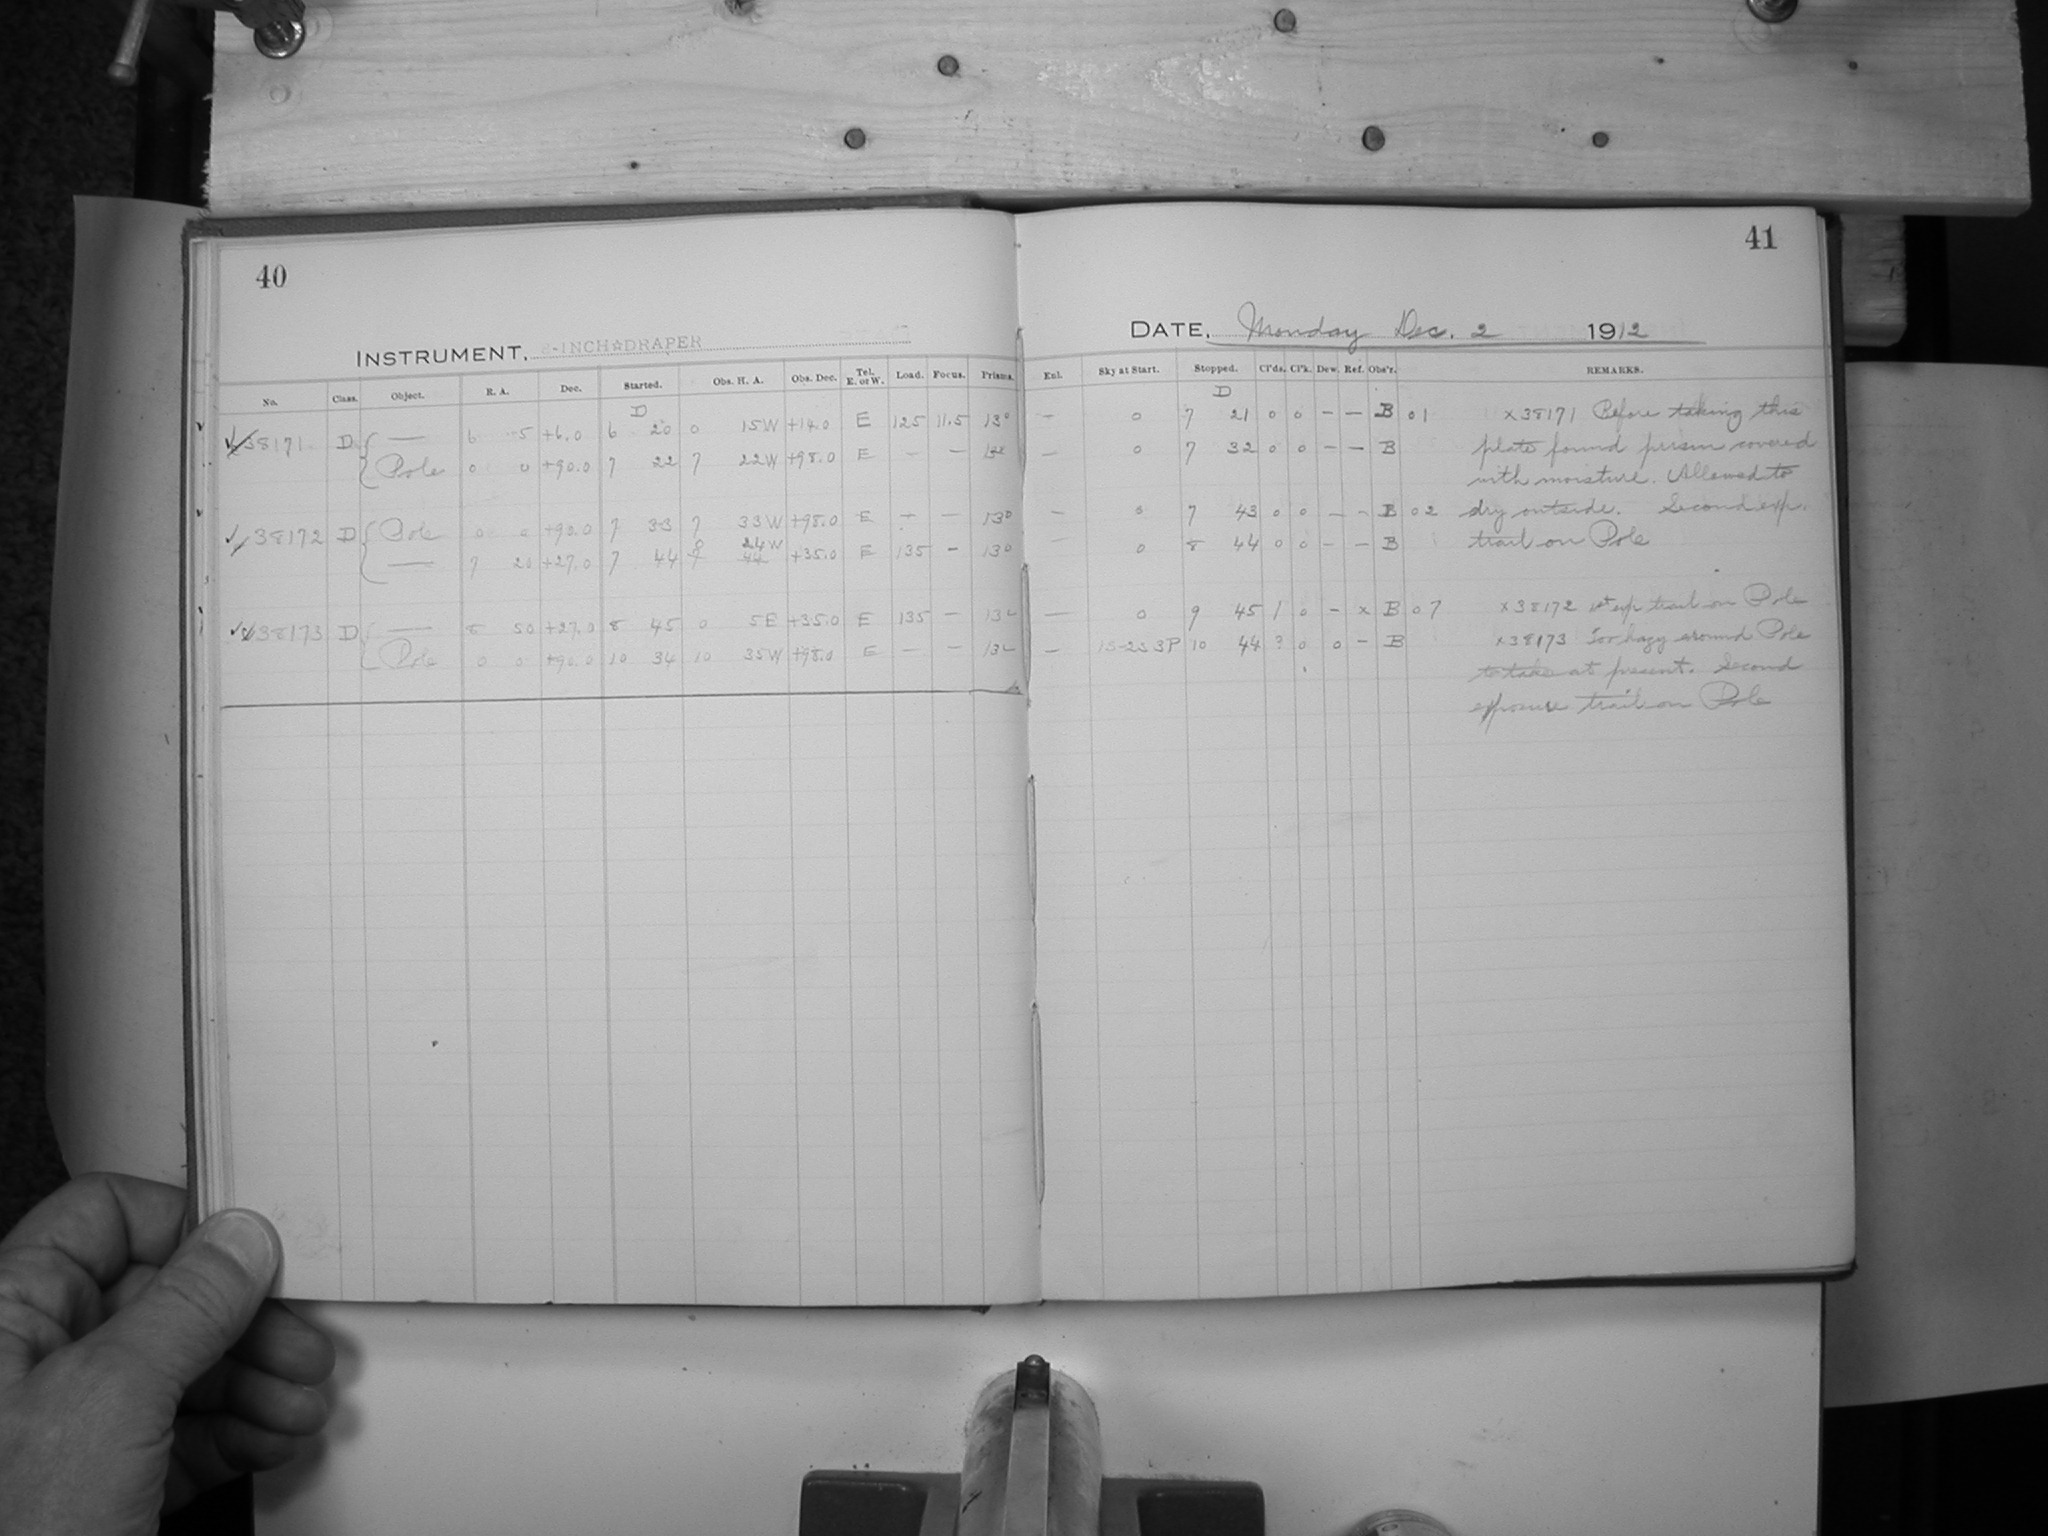 40
INSTRUMENT. 8-INCH☆DRAPER
No. Class. Object. R. A. Dec. Started. Obs. H. A. Obs. Dec. Tel. E. or W. Load. Focus. Prisms.
D
38171 D — 6 5 +6.0 6 20 0 15W +14.0 E 125 11.5 13°
Pole 0 0 +90.0 7 22 7 22W +98.0 E - -
38172 D Pole 0 0 +90.0 7 33 7 33W +98.0 E - - 13°
0 24W
— 7 20 +27.0 7 44 7 44 +35.0 E 135 - 13°
38173 D — 8 50 +27.0 8 45 0 5E +35.0 E 135 -
Pole 0 0 +90.0 10 34 10 35W +98.0 E - -
41
DATE. Monday Dec. 2 1912
Enl. Sky at Start. Stopped. Cl'ds. Cl'k. Dew. Ref. Obs'r. REMARKS.
D
— 0 7 21 0 0 - - B 01 x38171 Before taking this
— 0 7 32 0 0 - - B plate found prism covered
with moisture. Allowed to
— 0 7 43 0 0 - - B 02 dry outside. Second exp.
— 0 8 44 0 0 - - B trail on Pole
— 0 9 45 1 0 - x B 07 x38172 1st exp trail on Pole
— 1S-2S 3P 10 44 ? 0 0 - B x38173 Too hazy around Pole
to take at present. Second
exposure trail on Pole